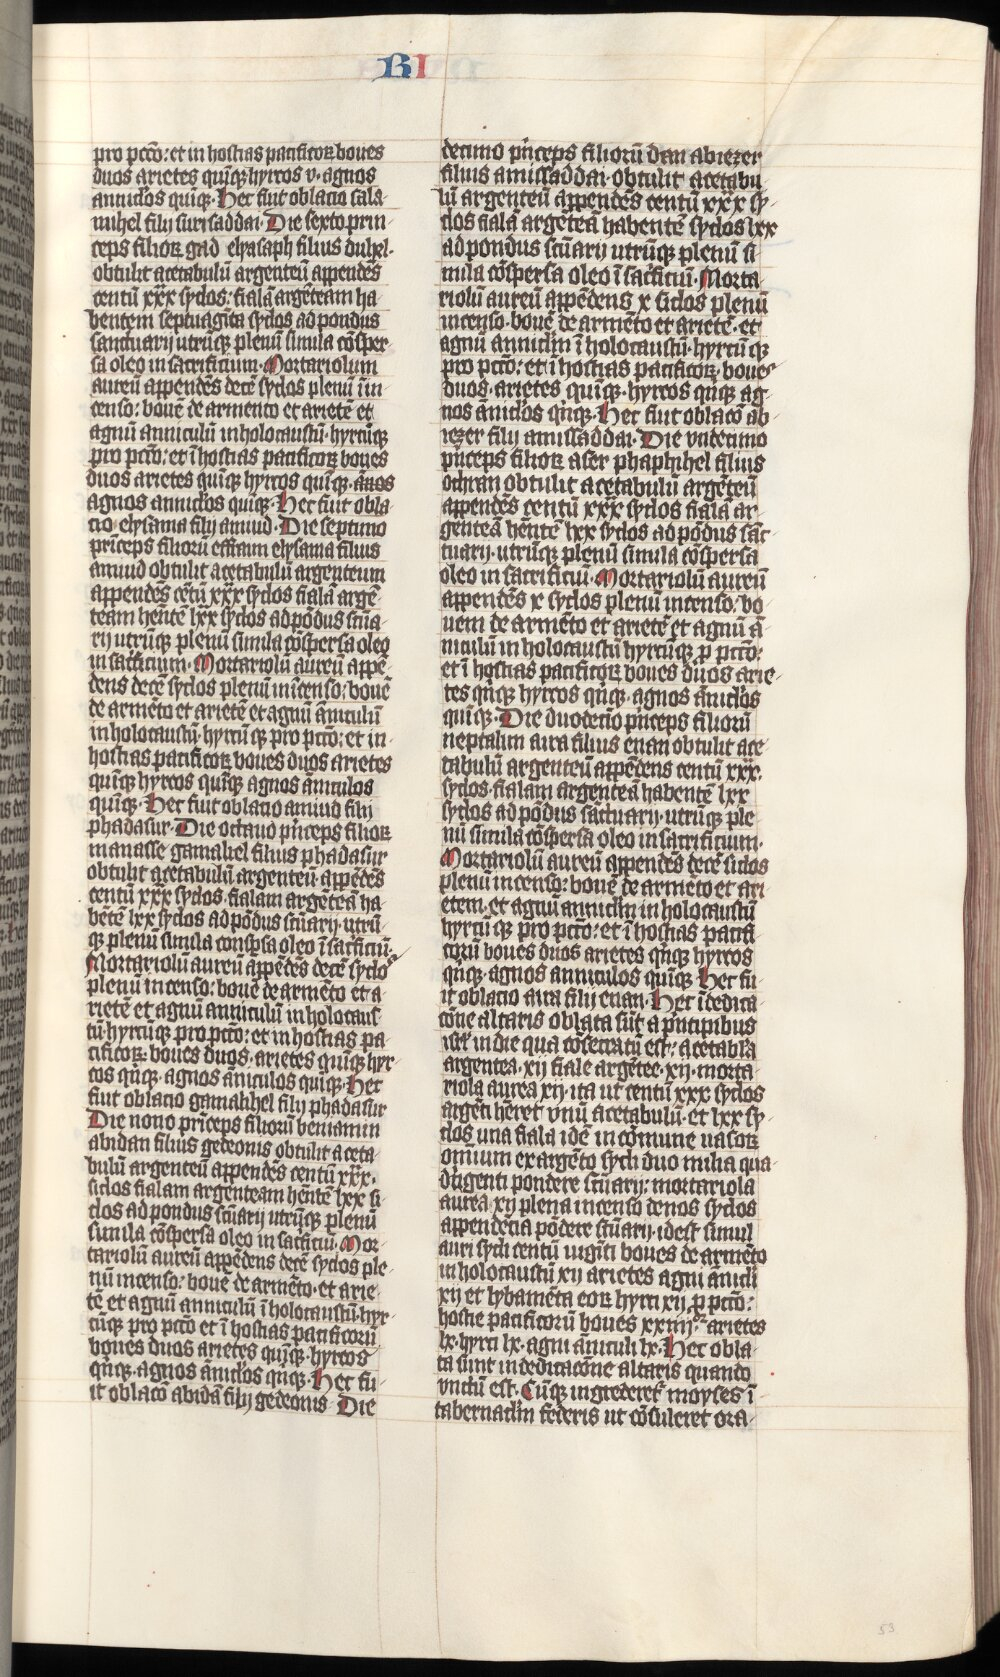 BI
pro pctō: et in hostias pacificoꝝ boues
duos arietes quīqꝫ hyrcos v. agnos
anniclōs quīqꝫ. Hec fuit oblatio sala
mihel filij surisaddai. Die sexto prin
ceps filioꝝ gad elyasaph filius duhel.
obtulit acetabulū argenteū appendēs
centū xxx syclos: fialā argēteam ha
bentem septuagīta syclos ad pondus
sanctuarij utrūqꝫ plenū simila cōsper
sa oleo in sacrificium. Mortariolum
aureū appendēs decē syclos plenū ī in
censo: bouē de armento et arietē et
agnū anniculū in holocaustū. hyrcūqꝫ
pro pctō: et ī hostias pacificoꝝ boues
duos arietes quīqꝫ hyrcos quīqꝫ. ānos
agnos anniclōs quīqꝫ. Hec fuit obla
tio elysama filij amiud. Die septimo
princeps filiorū effraim elysama filius
amiud obtulit acetabulū argenteum
appendēs cētū xxx syclos fialā argē
team hēntē lxx syclos ad pōdus scūa
rij utrūqꝫ plenū simila cōspersa oleo
in sacficium. Mortariolū aureū appē
dens decē syclos plenū incenso: bouē
de armēto et arietē et agnū āniculū
in holocaustū. hyrcū qꝫ pro pctō: et in
hostias pacificoꝝ boues duos arietes
quīqꝫ hyrcos quīqꝫ agnos āniculos
quīqꝫ. Hec fuit oblatio amiud filij
phadasur. Die octauo prīceps filioꝝ
manasse gamaliel filius phadasur
obtulit acetabulū argenteū. appēdēs
centū xxx syclos. fialam argēteā ha
bētē lxx syclos ad pōdus scūarij. utrū
qꝫ plenū simila conspsa oleo ī sacficiū.
Mortariolū aureū appēdēs decē syclos
plenū incenso: bouē de armēto et a
rietē et agnū anniculū in holocaus
tū. hyrcūqꝫ pro pctō: et in hostias pa
cificoꝝ. boues duos. arietes quīqꝫ hyr
cos qīnqꝫ. agnos āniculos quīqꝫ. Hec
fuit oblatio gamalihel filij phadasur
Die nono prīceps filiorū beniamin
abidan filius gedeonis obtulit aceta
bulū argenteū appendēs centū xxx.
siclos fialam argenteam hēntē lxx si
clos ad pondus scūarij utrūqꝫ plenū
simila cōspersa oleo in sacficiū. Mor
tariolū aureū appēdens decē syclos ple
nū incenso: bouē de armēto. et arie
tē et agnū anniculū ī holocaustū. hyr
cūqꝫ pro pctō et ī hostias pacificorū
boues duos arietes quīqꝫ. hyrcos
qīnqꝫ. agnos āniclōs qīnqꝫ. Hec fu
it oblacō abidā filij gedeonis. Die
decimo prīceps filiorū dan abiezer
filius amisaddai. obtulit acetabu
lū argenteū appendēs centū xxx sy
clos fialā argēteā habentē syclos lxx
ad pondus scūarij utrūqꝫ plenū si
mila cōspersa oleo ī sacficiū. Morta
riolū aureū appēdens x siclos plenū
incenso. bouē de armēto et arietē. et
agnū anniclm̄ ī holocaustū. hyrcū qꝫ
pro pctō: et ī hostias pacificoꝝ. boues
duos. arietes quīqꝫ. hyrcos qīnqꝫ ag
nos āniclōs qīnqꝫ. Hec fuit oblacō ab
iezer filij amissaddai. Die vndecimo
prīceps filioꝝ aser phaphihel filius
ochran obtulit acetabulū argēteū
appendēs centū xxx syclos fialā ar
genteā hēntē lxx syclos ad pōdus sāc
tuarij. utrūqꝫ plenū simila cōspersa
oleo in sacrificiū. Mortariolū aureū
appendēs x syclos plenū incenso: bo
uem de armēto et arietē et agnū ā
niculū in holocaustū hyrcūqꝫ p̱ pctō:
et ī hostias pacificoꝝ boues duos arie
tes qīnqꝫ hyrcos qīnqꝫ. agnos āniclōs
quīqꝫ. Die duodecīo prīceps filiorū
neptalim aira filius enan obtulit ace
tabulū argenteū appēdens centū xxx.
syclos. fialam argenteā habentē lxx
syclos ad pōdus sāctuarij. utrūqꝫ ple
nū simila cōspersa oleo in sacrificium.
Mortariolū aureū appendēs decē siclos
plenū incenso: bouē de armēto et ari
etem. et agnū anniclm̄ in holocaustū
hyrcū qꝫ pro pctō: et ī hostias pacifi
corū boues duos arietes qīnqꝫ hyrcos
qīnqꝫ. agnos anniculos quīqꝫ. Hec fu
it oblatio aira filij enan. Hec ī dedica
cōne altaris oblata sūt a prīncipibus
isrl̄ in die qua cōsecratū est: acetabl̄a
argentea. xij fiale argētee. xij. morta
riola aurea xij. ita ut centū xxx syclos
argēti hēret vnū acetabulū. et lxx sy
clos una fiala idē in cōmune uasoꝝ
omīum ex argēto sycli duo milia qua
drīgenti pondere scūarij: mortariola
aurea xij plena incenso denos syclos
appendēcia pōdere scūarij. idest simul
auri sycli centū uigīti boues de armēto
in holocaustū xij arietes agni ānicli
xij et lybamēta eoꝝ hyrci xij p̱ pctō:
hostie pacificorū boues xxiiij. arietes
lx. hyrci lx. agni āniculi lx. Hec obla
ta sunt in dedicacōne altaris quando
vnctū est. Cūqꝫ ingrederet̄ moyses ī
tabernaclm̄ federis ut cōsuleret ora
53